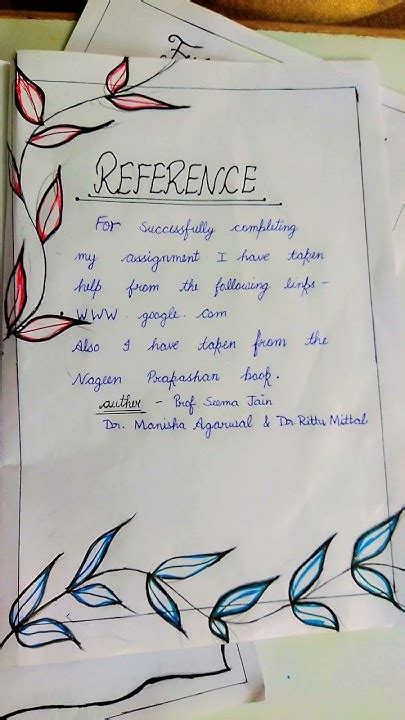 REFERENCE
For Successfully completing
my assignment I have taken
help from the following links -
• WWW. google. com
Also I have taken from the
Nageen Prakashan book.
author - Prof Seema Jain
Dr. Manisha Agarwal & Dr. Rittu Mittal